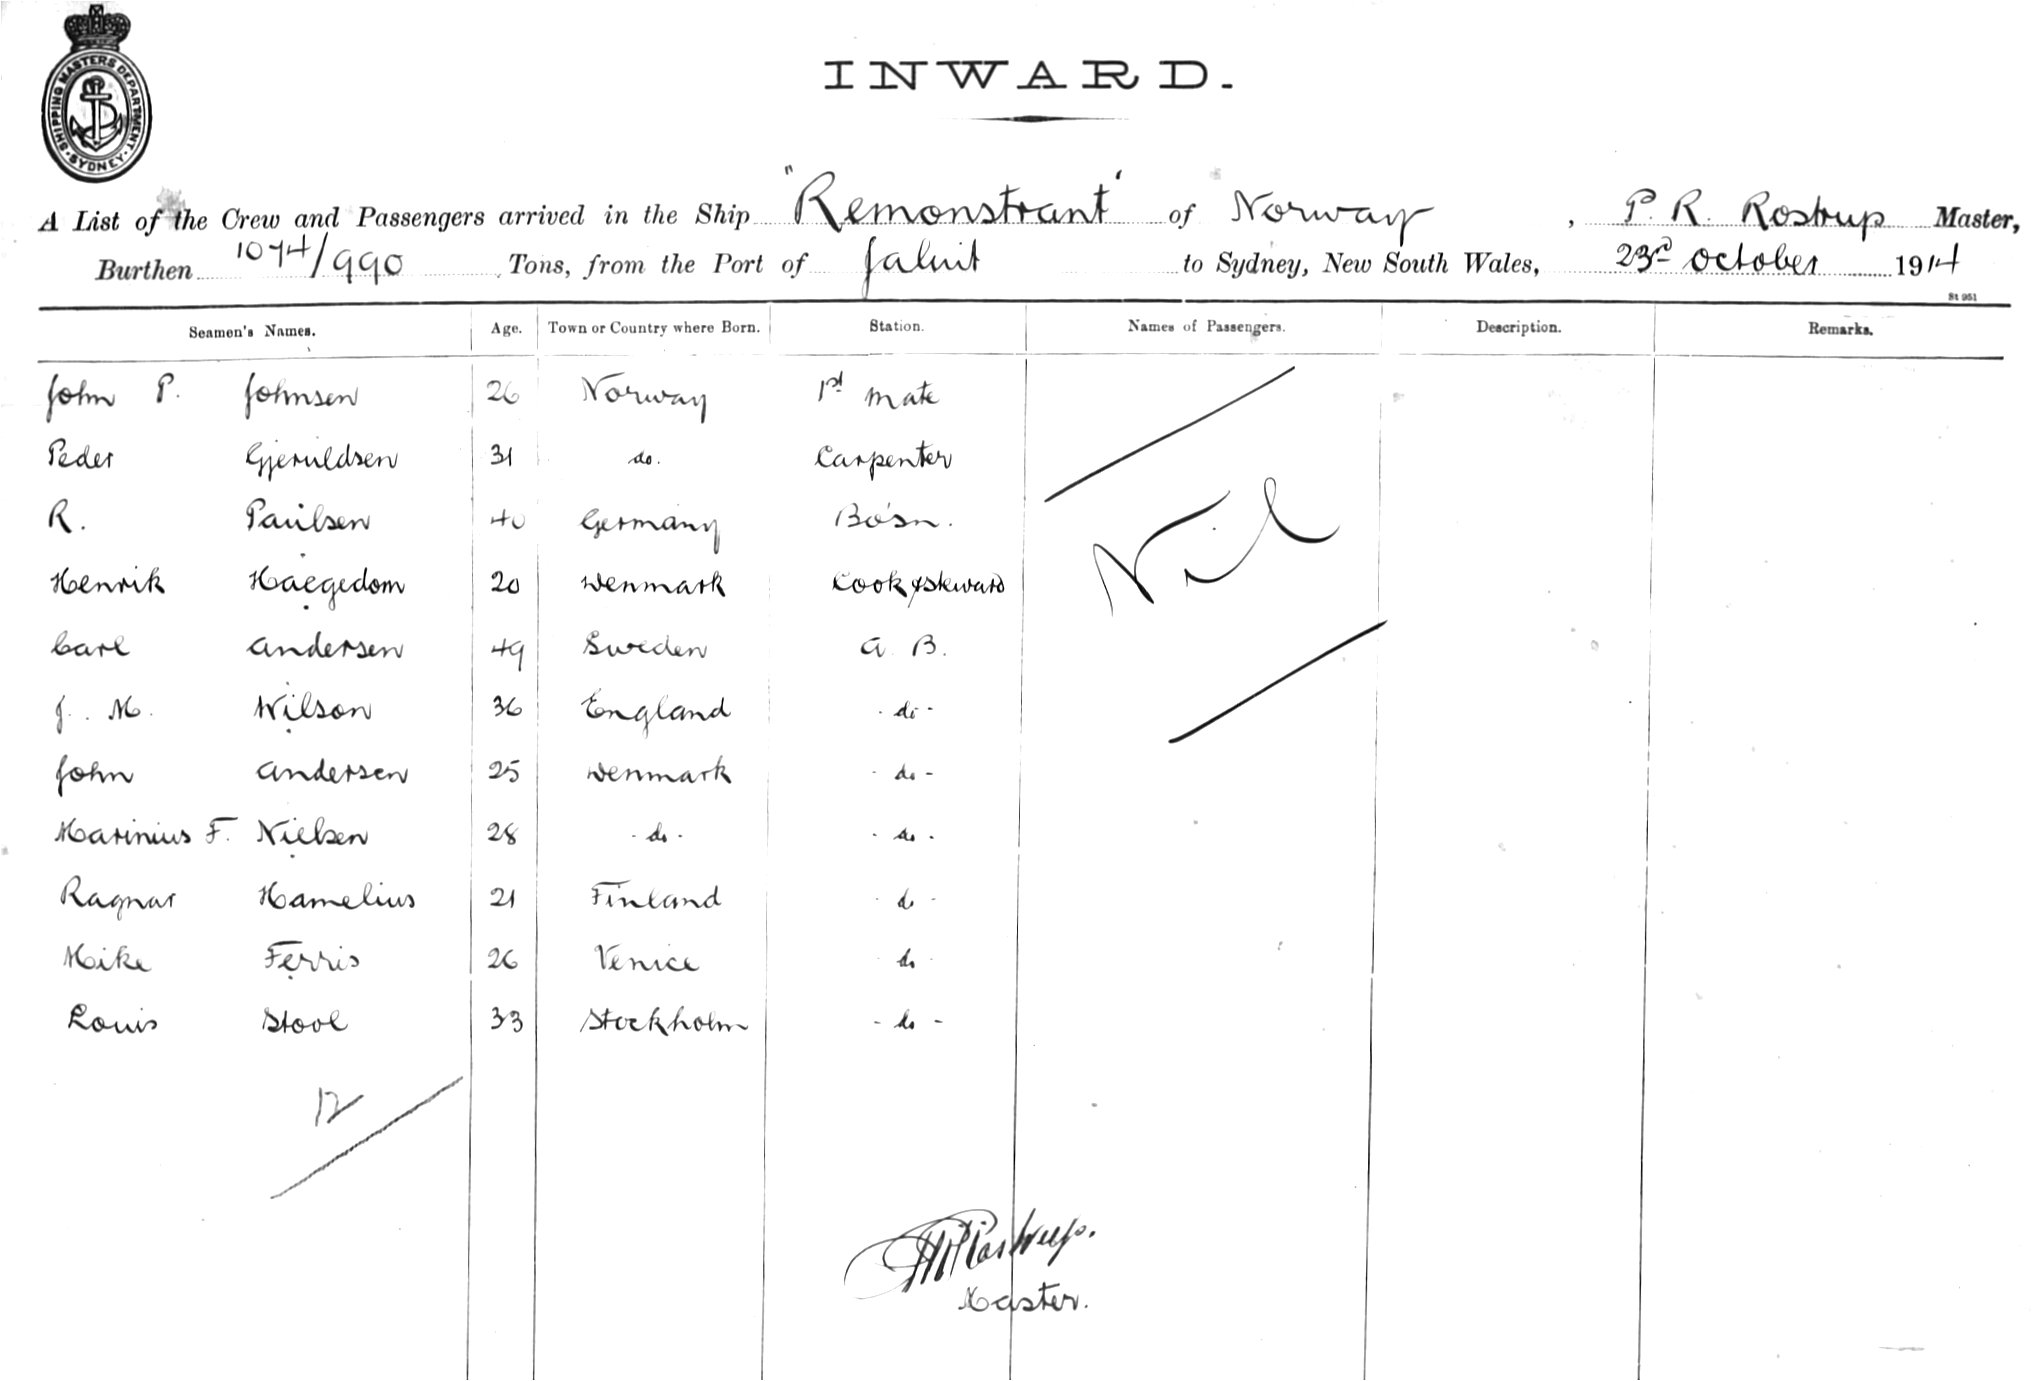 SHIPPING MASTERS DEPARTMENT
SYDNEY
INWARD.
A List of the Crew and Passengers arrived in the Ship "Remonstrant" of Norway, P. R. Rostrup Master,
Burthen 1074/990 Tons, from the Port of Jaluit to Sydney, New South Wales, 23rd October 1914
St 951
Seamen's Names. Age. Town or Country where Born. Station. Names of Passengers. Description. Remarks.
John P. Johnsen 26 Norway 1st Mate
Peder Gjeruldsen 31 do. Carpenter
R. Paulsen 40 Germany Bo'sn.
Nil
Henrik Haegedom 20 Denmark Cook & Steward
Carl Andersen 49 Sweden A. B.
J. M. Wilson 36 England - do -
John Andersen 25 Denmark - do -
Marinius F. Nielsen 28 - do - - do -
Ragnar Hamelius 21 Finland - do -
Mike Ferris 26 Venice do
Louis Stool 33 Stockholm - do -
12
Rostrup.
Master.